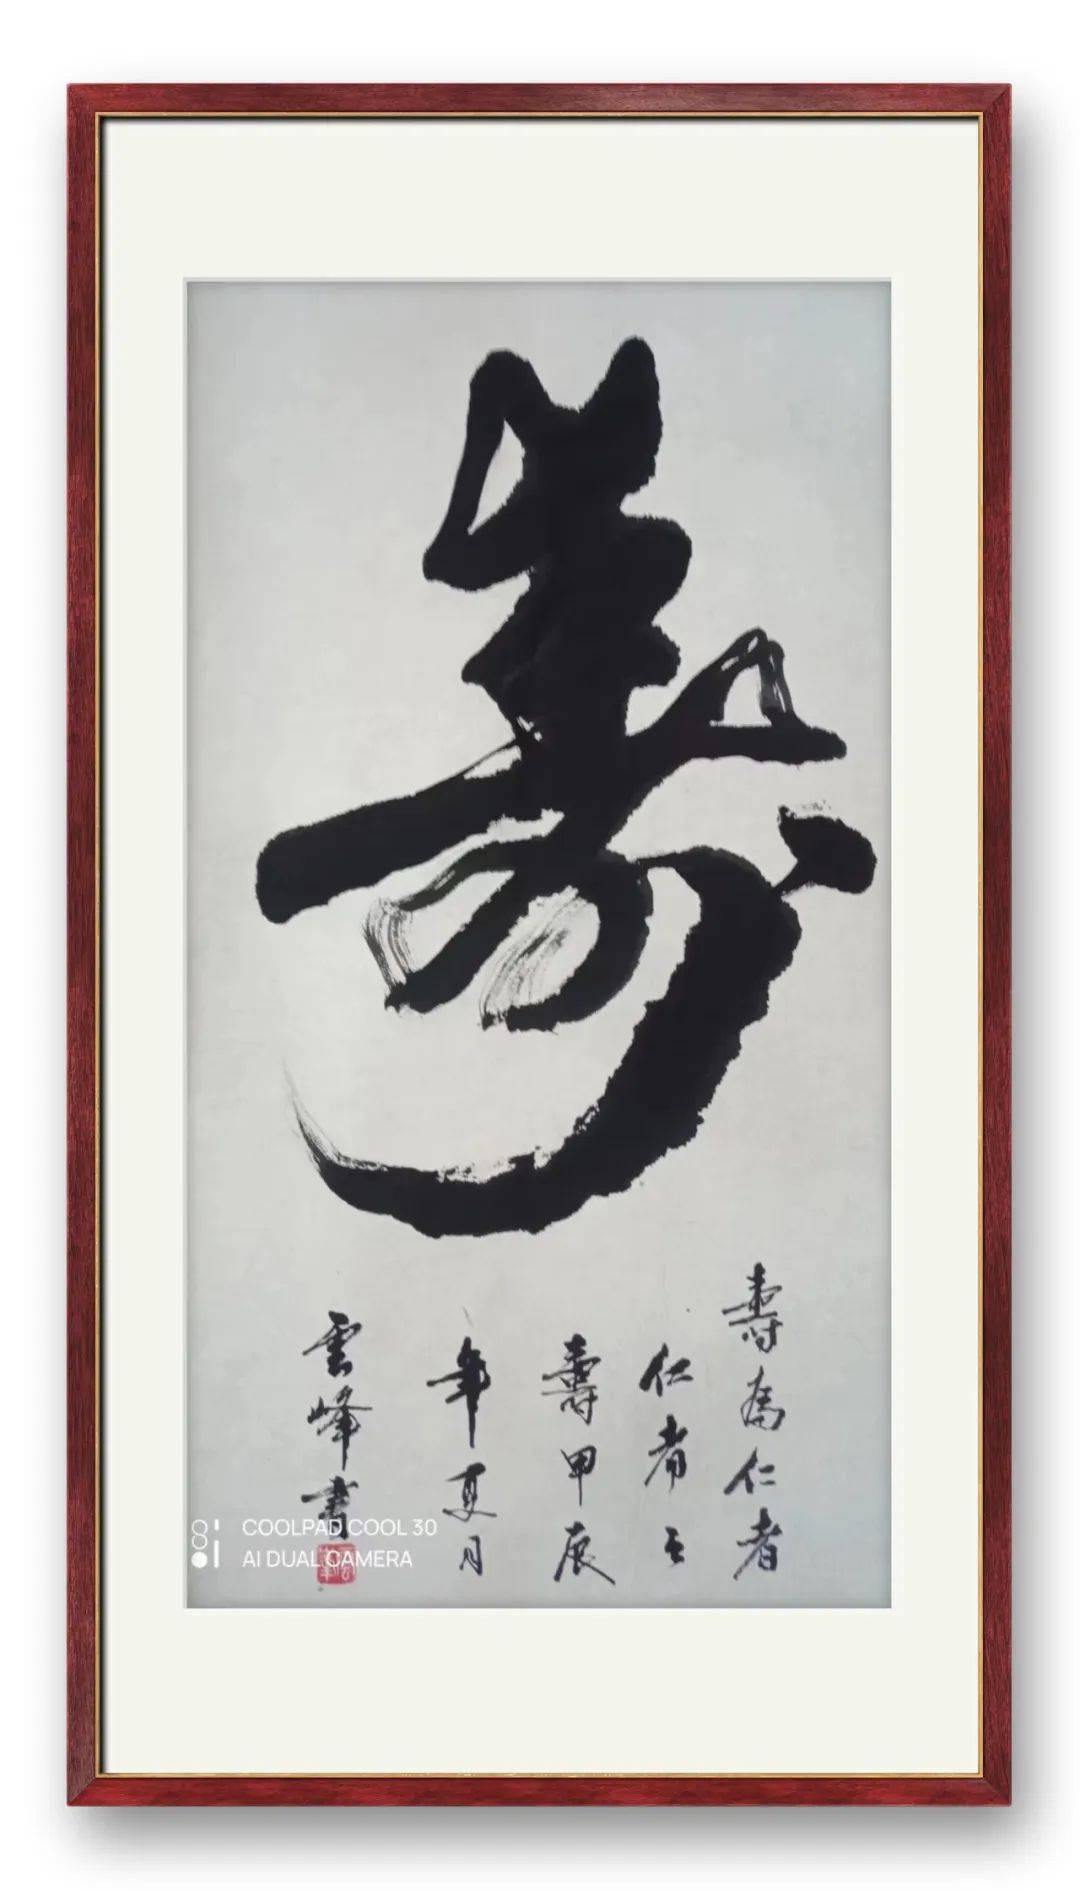 壽
壽為仁者
仁者之
壽甲辰
年夏月
雲峰書
COOLPAD COOL 30
AI DUAL CAMERA